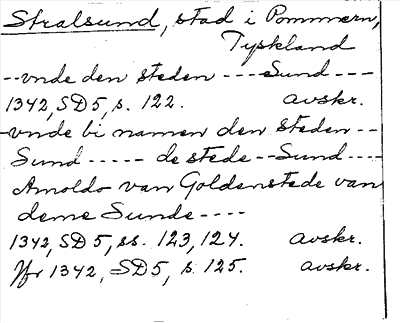 Stralsund, stad i Pommern,
Tyskland
--vnde den steden ----Sund---
1342, SD 5, s. 122. avskr.
-vnde bi namen den steden--
Sund----- de stede--Sund----
Arnoldo van Goldenstede van
deme Sunde----
1342, SD 5, ss. 123, 124. avskr.
Jfr 1342, SD 5, s. 125. avskr.